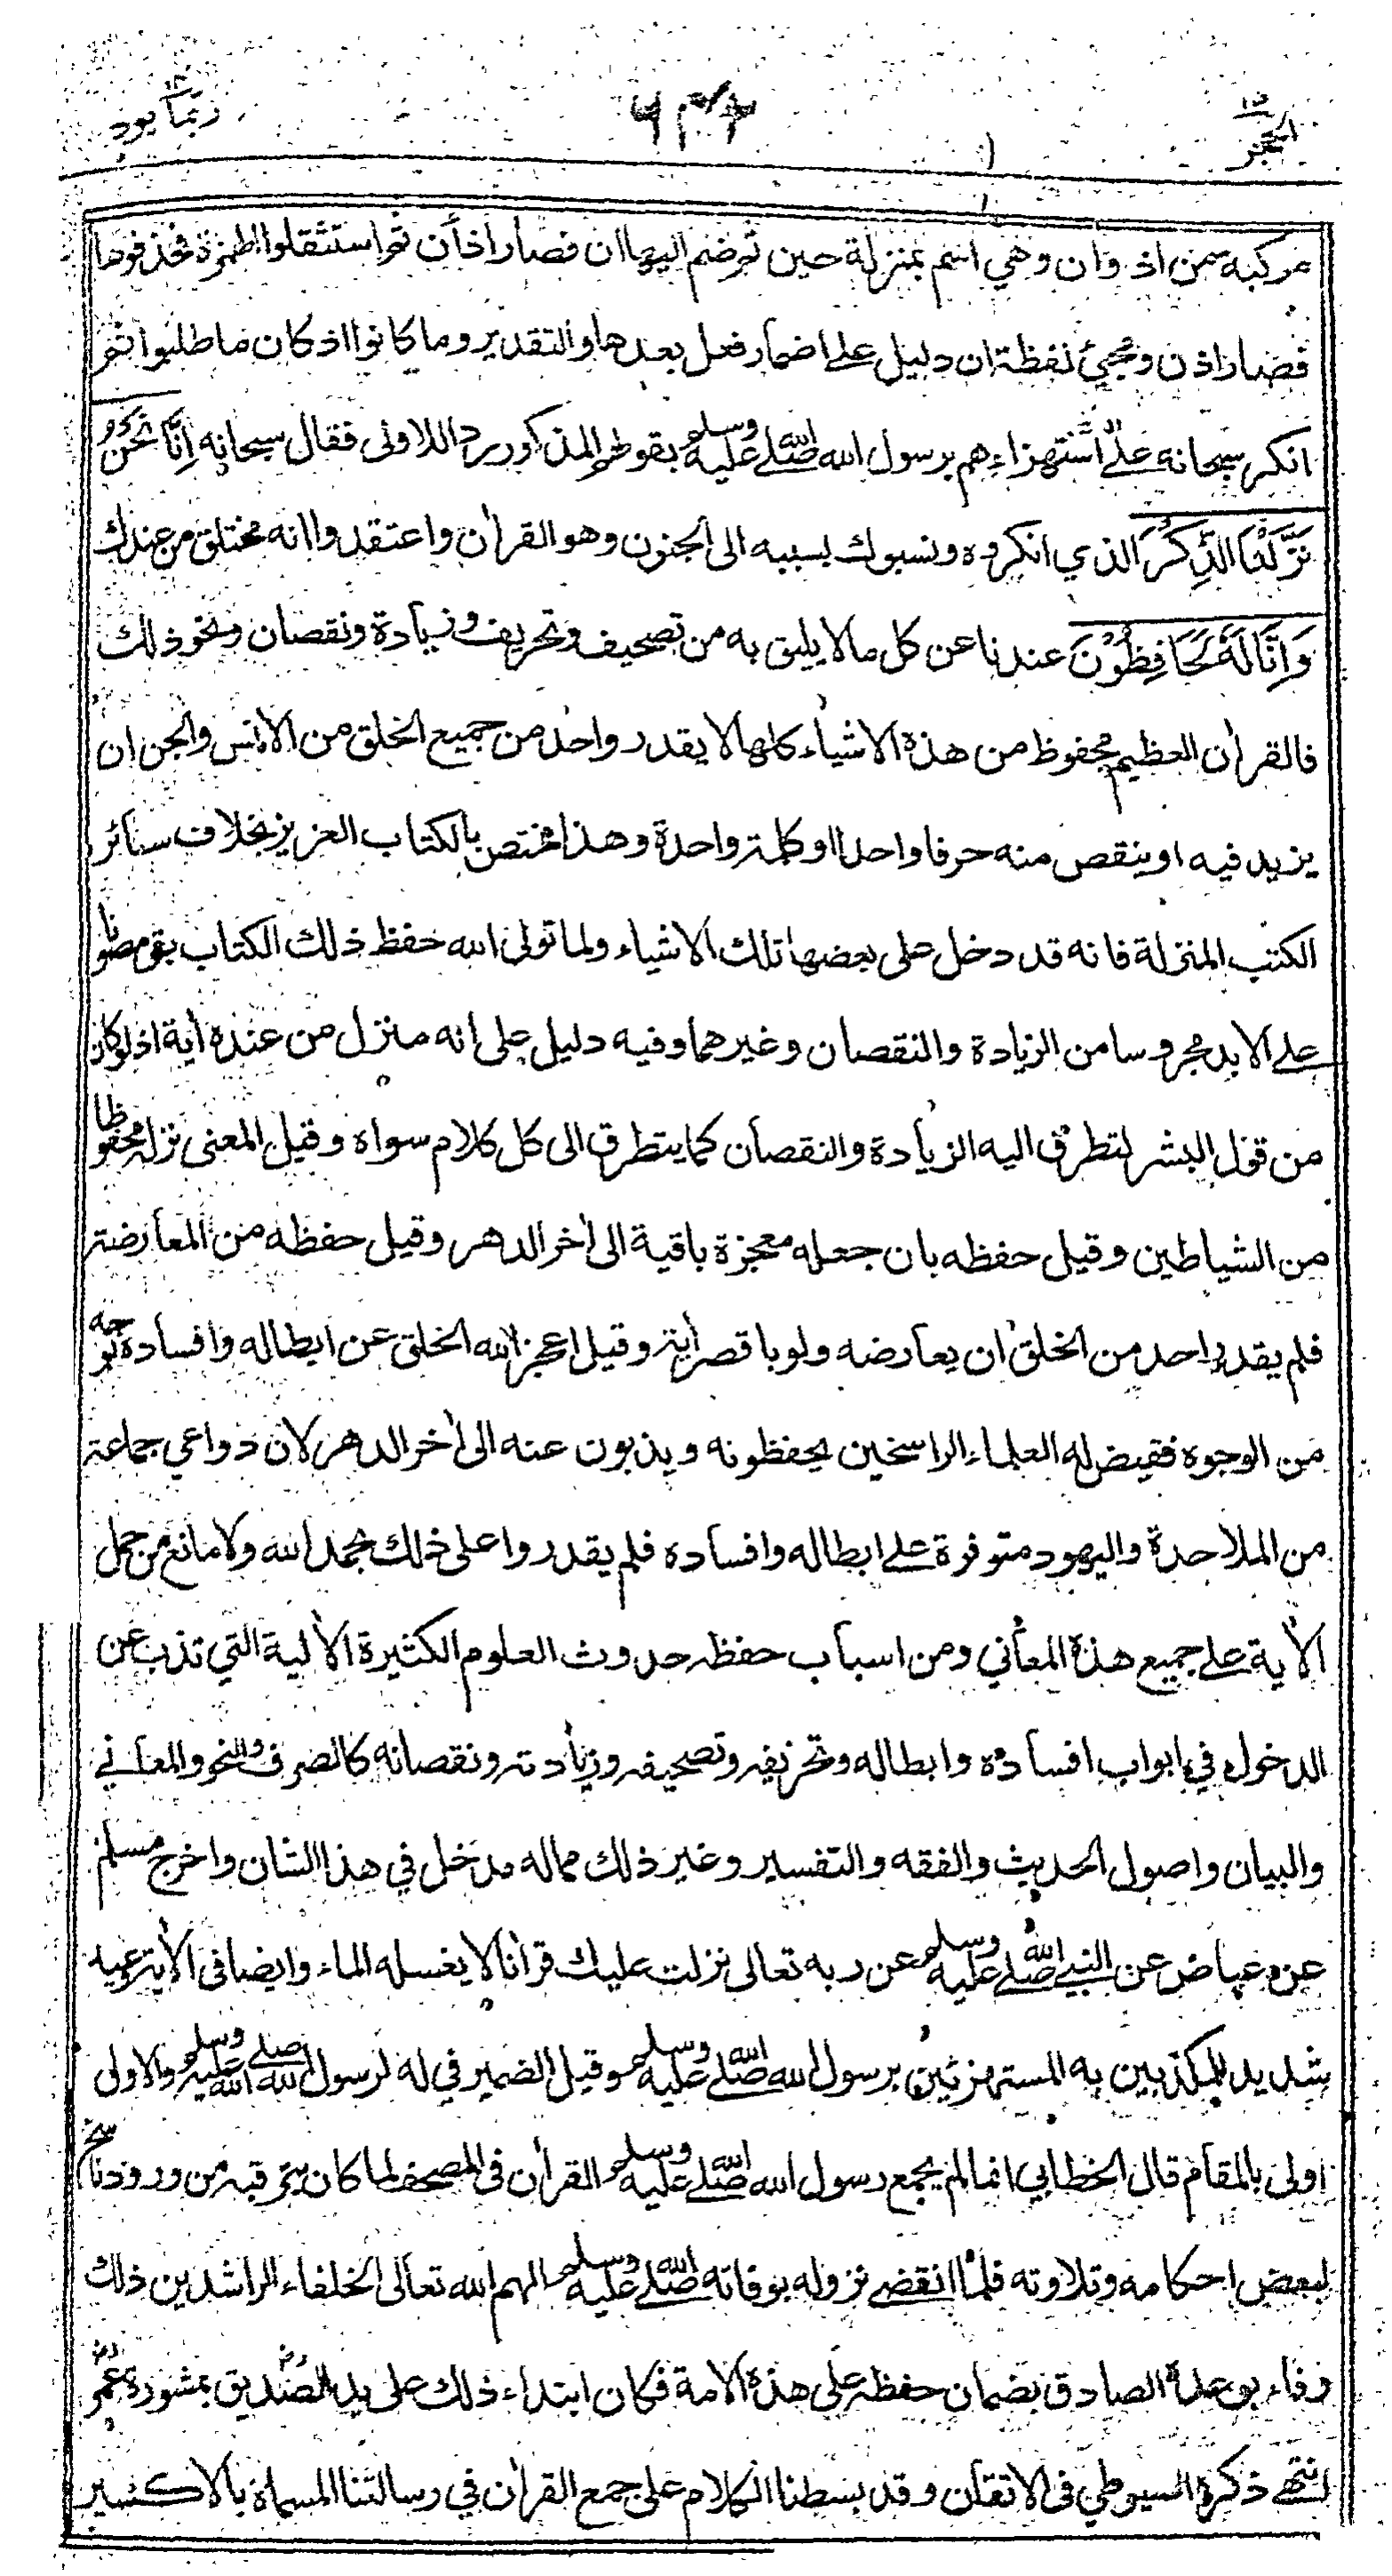 ١٥ الحجر
٦٣٢
١٤ ربما يود
مركبة من اذ وان وهي اسم بمنزلة حين ثم ضم اليها ان فصار اذ أن ثم استثقلوا الهمزة فحذفوها
فصار اذن ومجيئ لفظة ان دليل على اضمار فعل بعدها والتقدير وما كانوا اذ كان ما طلبوا ثم
انكر سبحانه على استهزاءهم برسول الله صلى الله عليه وسلم بقولهم المذكور رد اللاولى فقال سبحانه اِنَّا نَحْنُ
نَزَّلْنَا الذِّكْرَ الذي انكروه ونسبوك بسببه الى الجنون وهو القرأن واعتقدوا انه مختلق من عندك
وَاِنَّا لَهُ لَحَافِظُوْنَ عندنا عن كل مالا يليق به من تصحيف وتحريف وزيادة ونقصان ونحو ذلك
فالقرأن العظيم محفوظ من هذه الاشياء كلها لا يقدر واحد من جميع الخلق من الانس والجن ان
يزيد فيه او ينقص منه حرفا واحدا او كلمة واحدة وهذا مختص بالكتاب العزيز بخلاف سائر
الكتب المنزلة فانه قد دخل على بعضها تلك الاشياء ولما تولى الله حفظ ذلك الكتاب بقى مصونا
على الابد محروسا من الزيادة والنقصان وغيرهما وفيه دليل على انه منزل من عنده أية اذ لو كان
من قول البشر لتطرق اليه الزيادة والنقصان كما يتطرق الى كل كلام سواه وقيل المعنى نزله محفوظا
من الشياطين وقيل حفظه بان جعله معجزة باقية الى أخر الدهر وقيل حفظه من المعارضة
فلم يقدر احد من الخلق ان يعارضه ولو باقصر أية وقيل اعجز الله الخلق عن ابطاله وافساده بوجه
من الوجوه فقيض له العلماء الراسخين يحفظونه ويذبون عنه الى أخر الدهر لان دواعي جماعة
من الملاحدة واليهود متوفرة على ابطاله وافساده فلم يقدروا على ذلك بحمد الله ولا مانع من حمل
الأية على جميع هذه المعاني ومن اسباب حفظه حدوث العلوم الكثيرة الألية التي تذب عن
الدخول في ابواب افساده وابطاله وتحريفه وتصحيفه وزيادته ونقصانه كالصرف والنحو والمعاني
والبيان واصول الحديث والفقه والتفسير وغير ذلك مما له مدخل في هذا الشان واخرج مسلم
عن عياض عن النبي صلى الله عليه وسلم عن ربه تعالى نزلت عليك قرأنا لا يغسله الماء وايضا فى الأية وعيد
شديد للمكذبين به المستهزئين برسول الله صلى الله عليه وسلم وقيل الضمير في له لرسول الله صلى الله عليه وسلم والاولى
اولى بالمقام قال الخطابي انما لم يجمع رسول الله صلى الله عليه وسلم القرأن فى المصحف لما كان يترقبه من ورود ناسخ
لبعض احكامه وتلاوته فلما انقضى نزوله بوفاته صلى الله عليه وسلم الهم الله تعالى الخلفاء الراشدين ذلك
وفاء بوعده الصادق بضمان حفظه على هذه الامة فكان ابتداء ذلك على يد الصديق رض بمشورة عمر رض
انتهى ذكره السيوطي فى الاتقان وقد بسطنا الكلام على جمع القرأن في رسالتنا المسماة بالاكسير